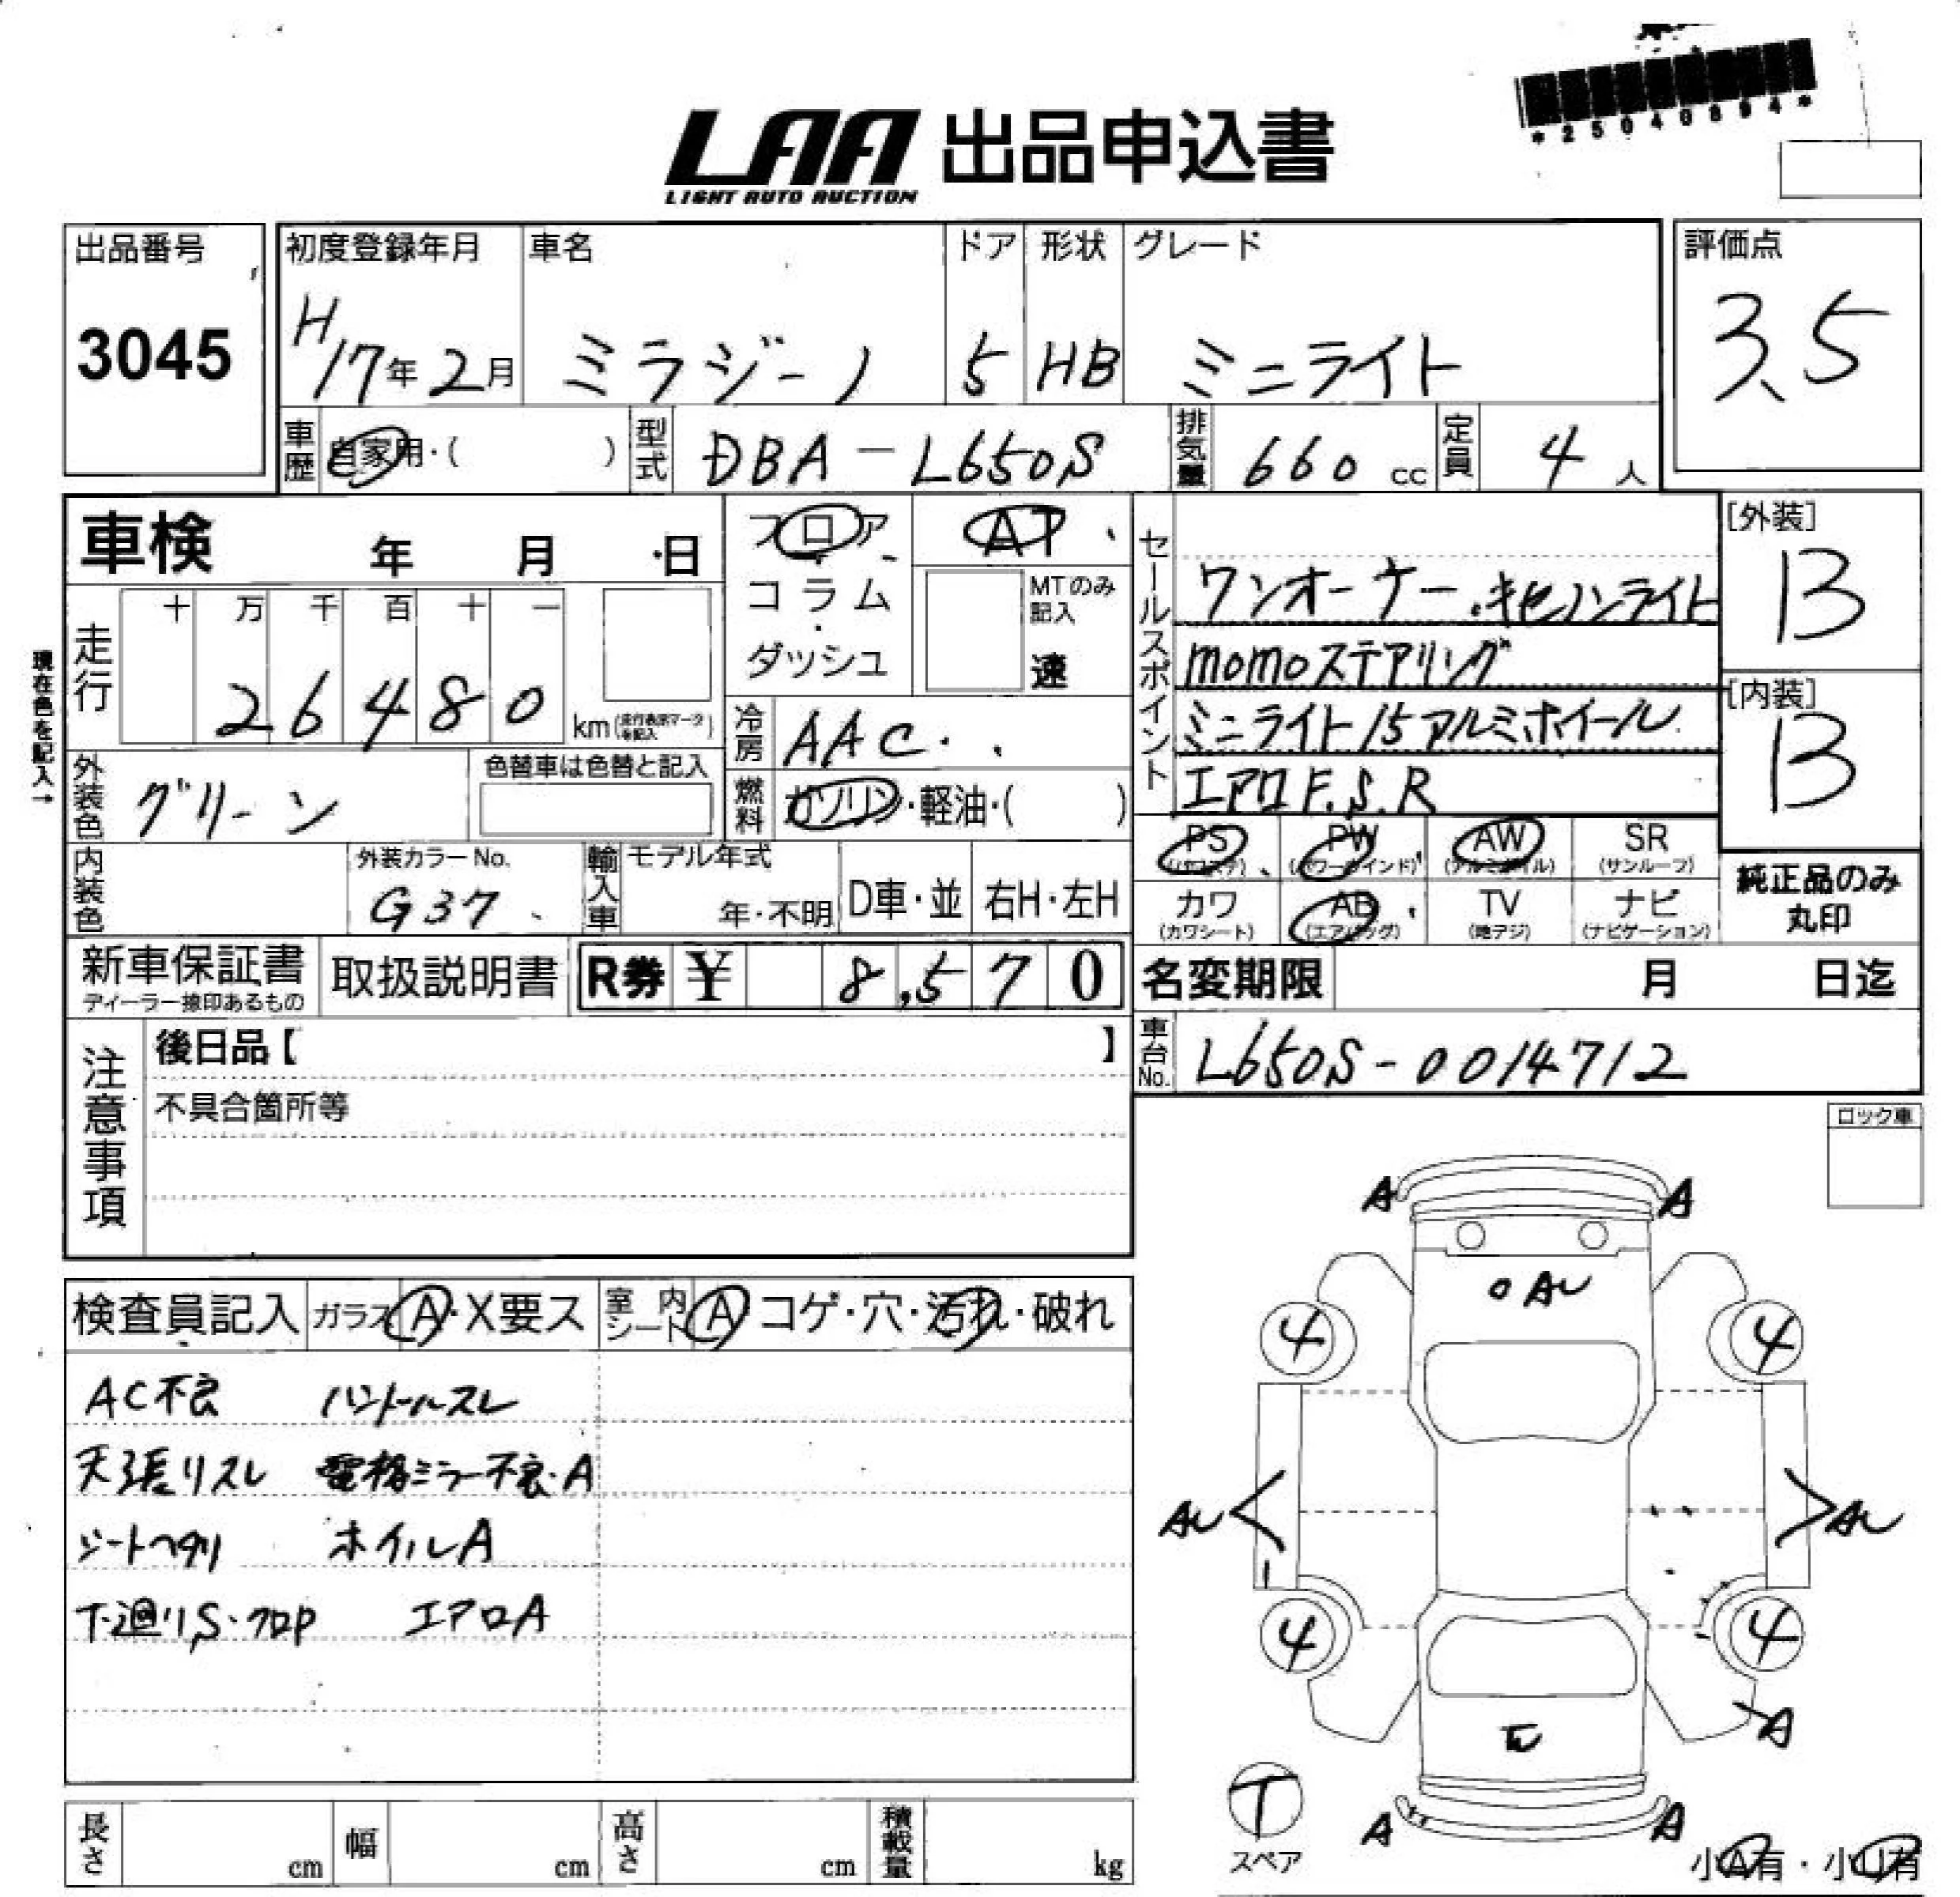 *25040894*
LAA 出品申込書
LIGHT AUTO AUCTION
出品番号
3045
初度登録年月
H17年2月
車名
ミラジーノ
ドア
5
形状
HB
グレード
ミニライト
評価点
3.5
車歴 自家用・( )
型式 DBA-L650S
排気量 660 cc
定員 4 人
車検 年 月 日
フロア・コラム・ダッシュ
AT
MTのみ記入
速
セールスポイント
ワンオーナー・キセノンライト
momoステアリング
ミニライト15アルミホイール
エアロF.S.R
[外装]
13
[内装]
13
現在色を記入→
走行
十 万 千 百 十 一
2 6 4 8 0 km(走行表示マークを記入)
冷房 AAC
燃料 ガソリン・軽油・( )
外装色 グリーン
色替車は色替と記入
内装色
外装カラーNo.
G37
輸入車 モデル年式
年・不明
D車・並
右H・左H
PS (パワステ)
PW (パワーウインド)
AW (アルミホイル)
SR (サンルーフ)
カワ (カワシート)
AB (エアバッグ)
TV (地デジ)
ナビ (ナビゲーション)
純正品のみ
丸印
新車保証書
ディーラー捺印あるもの
取扱説明書
R券 ¥ 8,570
名変期限 月 日迄
車台No. L650S-0014712
注意事項
後日品【 】
不具合箇所等
ロック車
検査員記入
ガラス A・X要ス
室内シート A コゲ・穴・汚れ・破れ
AC不良 ハンドルスレ
天張リスレ 電格ミラー不良・A
シートヘタリ ホイルA
下廻りS・フロP エアロA
A A
AU
4 4
AU AU
4 4
A
A A
T
スペア
小A有・小U有
長さ cm
幅 cm
高さ cm
積載量 kg